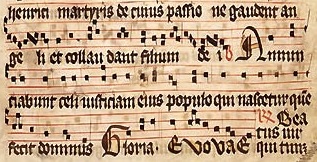 henrici martyris de cuius passio ne gaudent an
ge li et collau dant filium de i Annun
ciabunt celi iusticiam eius populo qui nascetur quē
fecit dominus Gloria Evovae Bea
tus uir
qui tim